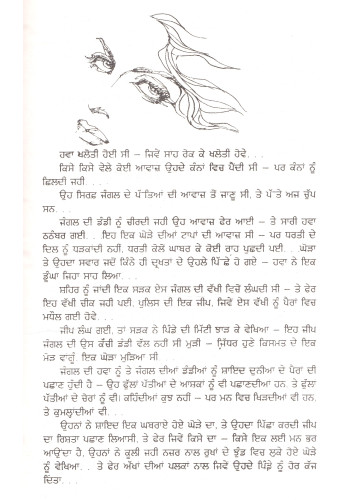 ਹਵਾ ਖਲੋਤੀ ਹੋਈ ਸੀ – ਜਿਵੇਂ ਸਾਹ ਰੋਕ ਕੇ ਖਲੋਤੀ ਹੋਵੇ. . .
ਕਿਸੇ ਕਿਸੇ ਵੇਲੇ ਕੋਈ ਆਵਾਜ਼ ਉਹਦੇ ਕੰਨਾਂ ਵਿਚ ਪੈਂਦੀ ਸੀ – ਪਰ ਕੰਨਾਂ ਨੂੰ
ਛਿਲਦੀ ਜਹੀ. . .
ਉਹ ਸਿਰਫ਼ ਜੰਗਲ ਦੇ ਪੱਤਿਆਂ ਦੀ ਆਵਾਜ਼ ਤੋਂ ਜਾਣੂ ਸੀ, ਤੇ ਪੱਤੇ ਅਜ ਚੁਪ
ਸਨ. . .
ਜੰਗਲ ਦੀ ਡੰਡੀ ਨੂੰ ਚੀਰਦੀ ਜਹੀ ਉਹ ਆਵਾਜ਼ ਫੇਰ ਆਈ – ਤੇ ਸਾਰੀ ਹਵਾ
ਠਠੰਬਰ ਗਈ. . . ਇਹ ਇਕ ਘੋੜੇ ਦੀਆਂ ਟਾਪਾਂ ਦੀ ਆਵਾਜ਼ ਸੀ – ਪਰ ਧਰਤੀ ਦੇ
ਦਿਲ ਨੂੰ ਧੜਕਾਂਦੀ ਨਹੀਂ, ਧਰਤੀ ਕੋਲੋਂ ਘਾਬਰ ਕੇ ਕੋਈ ਰਾਹ ਪੁਛਦੀ ਪਈ. . . ਘੋੜਾ
ਤੇ ਉਹਦਾ ਸਵਾਰ ਜਦੋਂ ਕਿੰਨੇ ਹੀ ਦ੍ਰਖ਼ਤਾਂ ਦੇ ਉਹਲੇ ਪਿੱਛੇ ਹੋ ਗਏ – ਹਵਾ ਨੇ ਇਕ
ਡੂੰਘਾ ਜਿਹਾ ਸਾਹ ਲਿਆ. . .
ਸ਼ਹਿਰ ਨੂੰ ਜਾਂਦੀ ਇਕ ਸੜਕ ਏਸ ਜੰਗਲ ਦੀ ਵੱਖੀ ਵਿਚੋਂ ਲੰਘਦੀ ਸੀ – ਤੇ ਫੇਰ
ਇਹ ਵੱਖੀ ਚੀਕ ਜਹੀ ਪਈ, ਪੁਲਿਸ ਦੀ ਇਕ ਜੀਪ, ਜਿਵੇਂ ਏਸ ਵੱਖੀ ਨੂੰ ਪੈਰਾਂ ਵਿਚ
ਮਧੋਲ ਗਈ ਹੋਵੇ. . .
ਜੀਪ ਲੰਘ ਗਈ, ਤਾਂ ਸੜਕ ਨੇ ਪਿੰਡੇ ਦੀ ਮਿੱਟੀ ਝਾੜ ਕੇ ਵੇਖਿਆ – ਇਹ ਜੀਪ
ਜੰਗਲ ਦੀ ਉਸ ਕੱਚੀ ਡੰਡੀ ਵੱਲ ਨਹੀਂ ਸੀ ਮੁੜੀ – ਜਿੱਧਰ ਹੁਣੇ ਕਿਸਮਤ ਦੇ ਇਕ
ਮੋੜ ਵਾਂਗੂੰ, ਇਕ ਘੋੜਾ ਮੁੜਿਆ ਸੀ. . .
ਜੰਗਲ ਦੀ ਹਵਾ ਨੂੰ ਤੇ ਜੰਗਲ ਦੀਆਂ ਡੰਡੀਆਂ ਨੂੰ ਸ਼ਾਇਦ ਦੁਨੀਆ ਦੇ ਪੈਰਾਂ ਦੀ
ਪਛਾਣ ਹੁੰਦੀ ਹੈ – ਉਹ ਫੁੱਲਾਂ ਪੱਤੀਆਂ ਦੇ ਆਸ਼ਕਾਂ ਨੂੰ ਵੀ ਪਛਾਣਦੀਆਂ ਹਨ, ਤੇ ਫੁੱਲਾਂ
ਪੱਤੀਆਂ ਦੇ ਚੋਰਾਂ ਨੂੰ ਵੀ। ਕਹਿੰਦੀਆਂ ਕੁਝ ਨਹੀਂ – ਪਰ ਮਨ ਵਿਚ ਖਿੜਦੀਆਂ ਵੀ ਹਨ,
ਤੇ ਕੁਮਲਾਂਦੀਆਂ ਵੀ. . .
ਉਹਨਾਂ ਨੇ ਸ਼ਾਇਦ ਇਕ ਘਬਰਾਏ ਹੋਏ ਘੋੜੇ ਦਾ, ਤੇ ਉਹਦਾ ਪਿੱਛਾ ਕਰਦੀ ਜੀਪ
ਦਾ ਰਿਸ਼ਤਾ ਪਛਾਣ ਲਿਆਸੀ, ਤੇ ਫੇਰ ਜਿਵੇਂ ਕਿਸੇ ਦਾ – ਕਿਸੇ ਇਕ ਲਈ ਮਨ ਭਰ
ਆਉਂਦਾ ਹੈ, ਉਹਨਾਂ ਨੇ ਕੂਲੀ ਜਹੀ ਨਜ਼ਰ ਨਾਲ ਰੁਖਾਂ ਦੇ ਝੁੰਡ ਵਿਚ ਲੁਕੇ ਹੋਏ ਘੋੜੇ
ਨੂੰ ਵੇਖਿਆ. . . ਤੇ ਫੇਰ ਅੱਖਾਂ ਦੀਆਂ ਪਲਕਾਂ ਨਾਲ ਜਿਵੇਂ ਉਹਦੇ ਪਿੰਡੇ ਨੂੰ ਹੋਰ ਕੱਜ
ਦਿਤਾ. . .